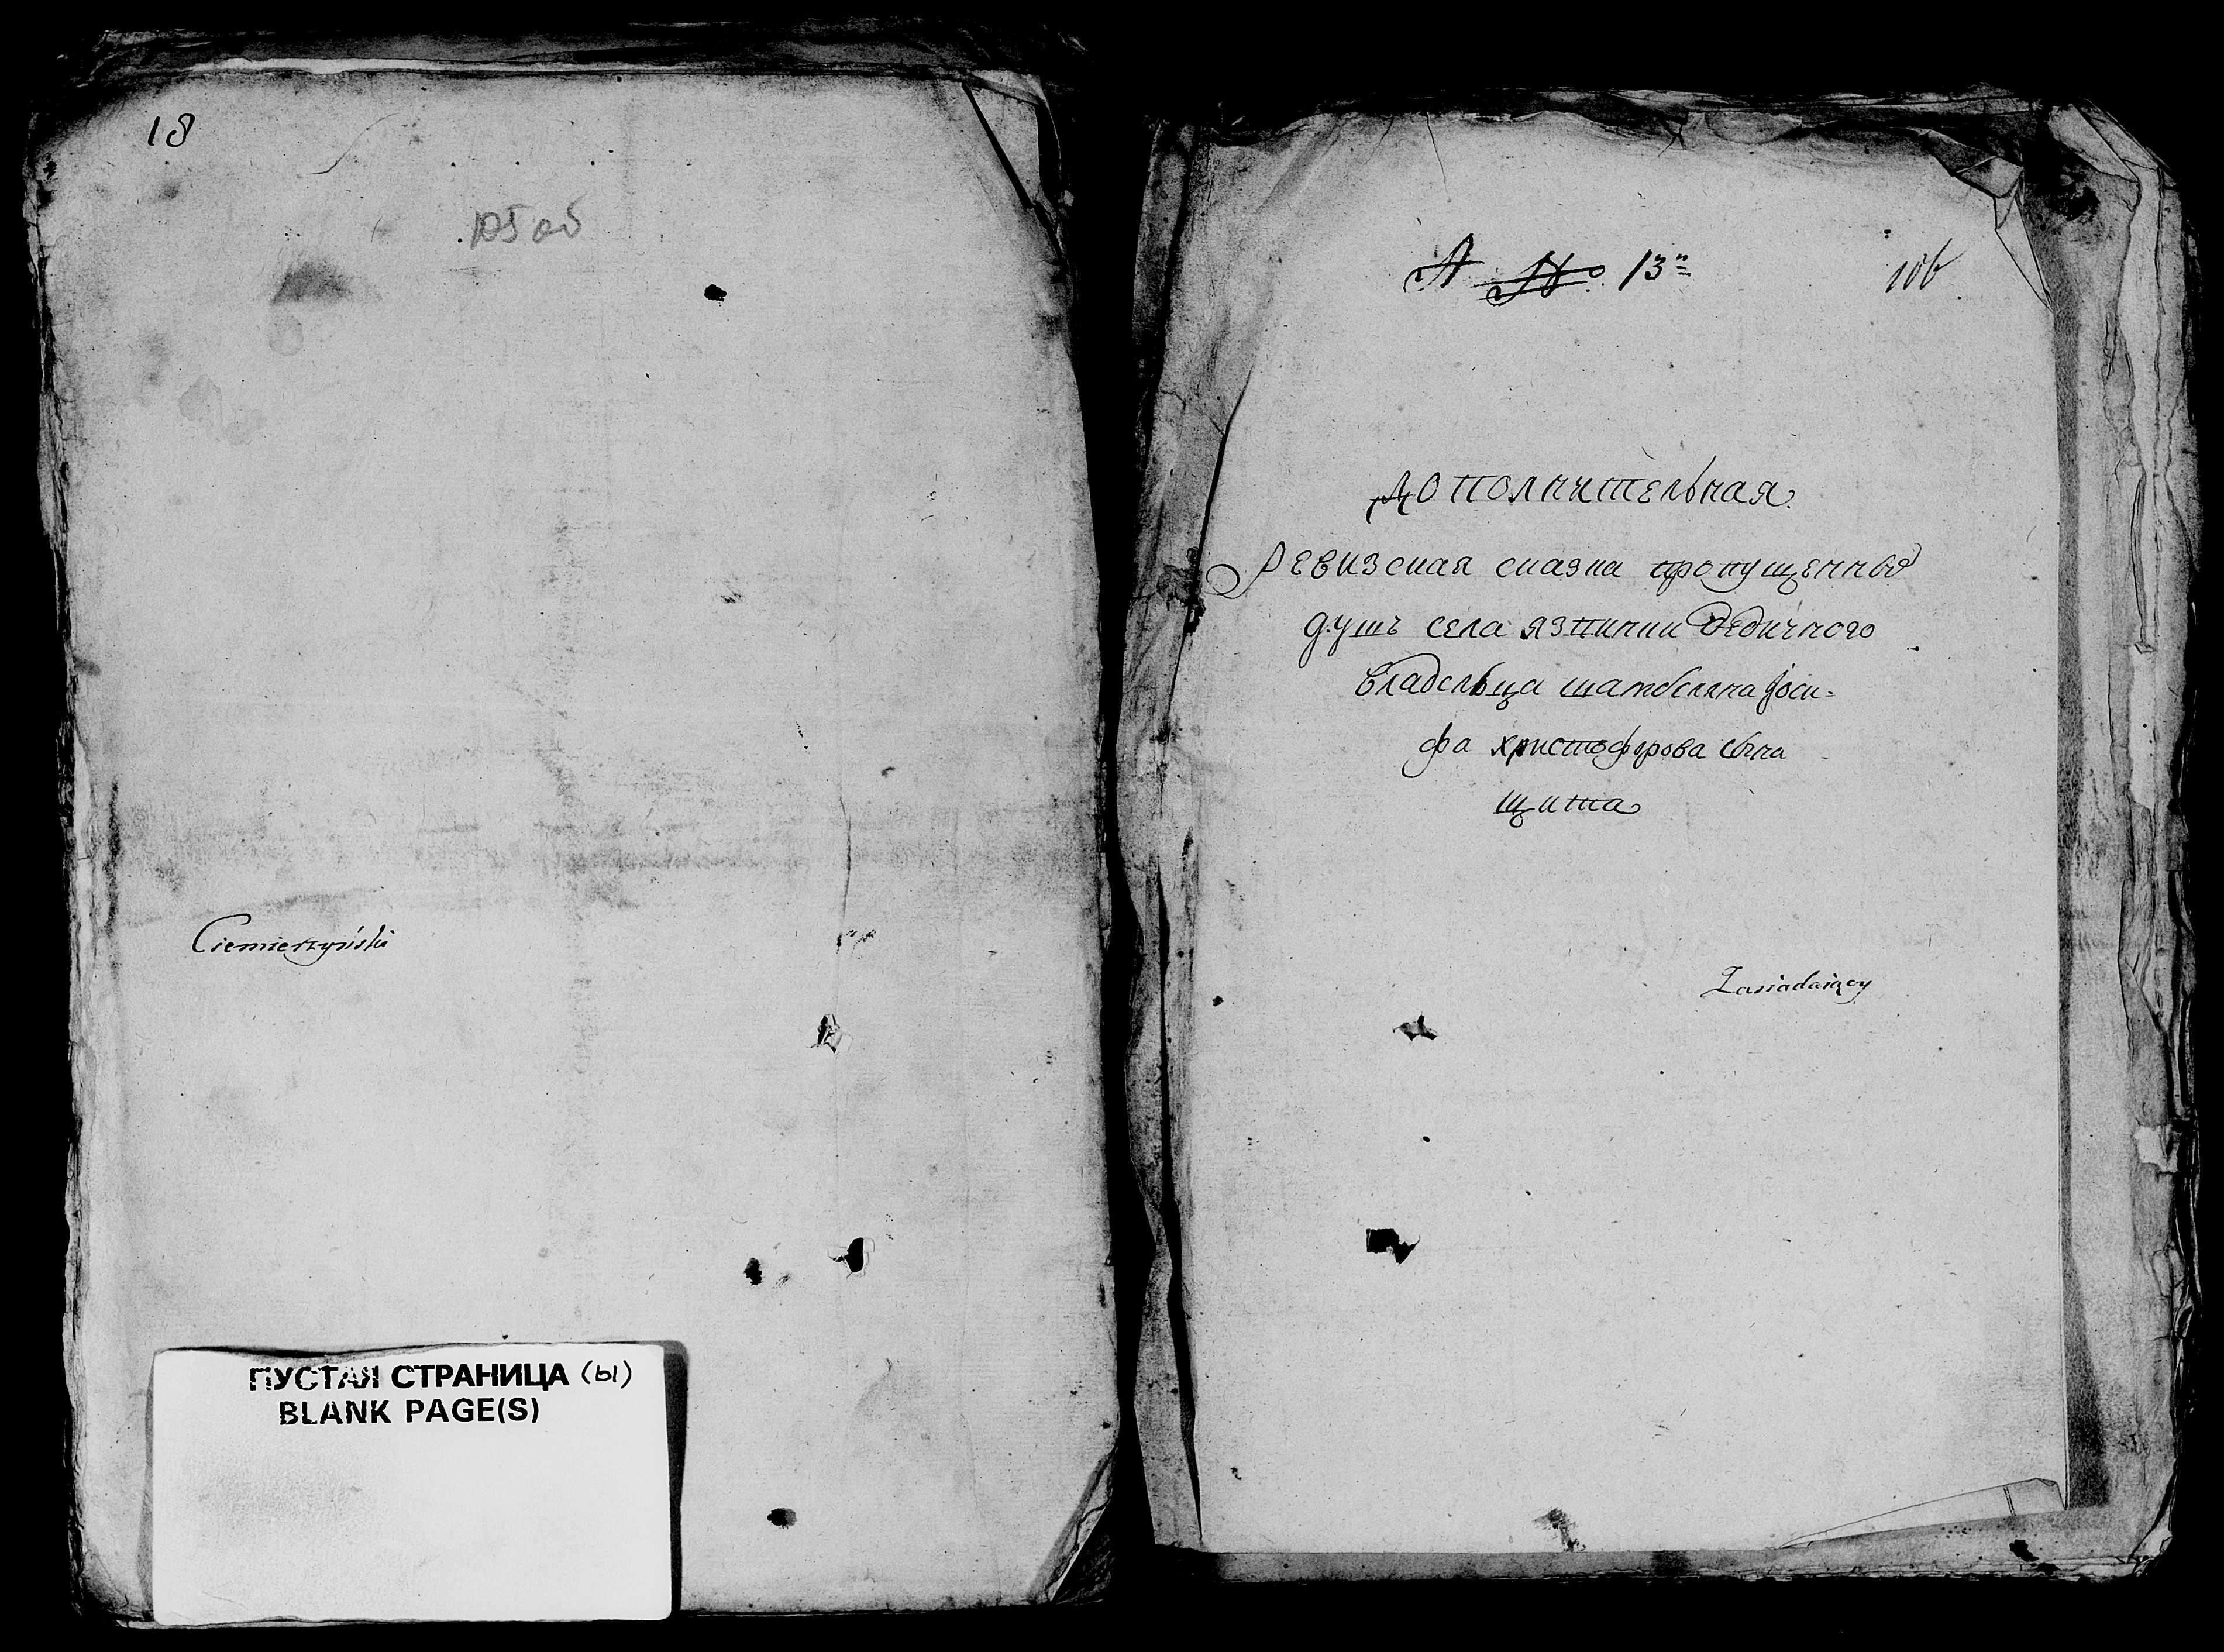 18
105 об
Ciemierzyński
ПУСТАЯ СТРАНИЦА (ы)
BLANK PAGE(S)
А № 13
106
Дополнительная
Ревизская сказка пропущенных
душъ села язпинки дедичного
владельца шамбеляна Іоси-
фа христофорова сына
щита
Zasiadaiący